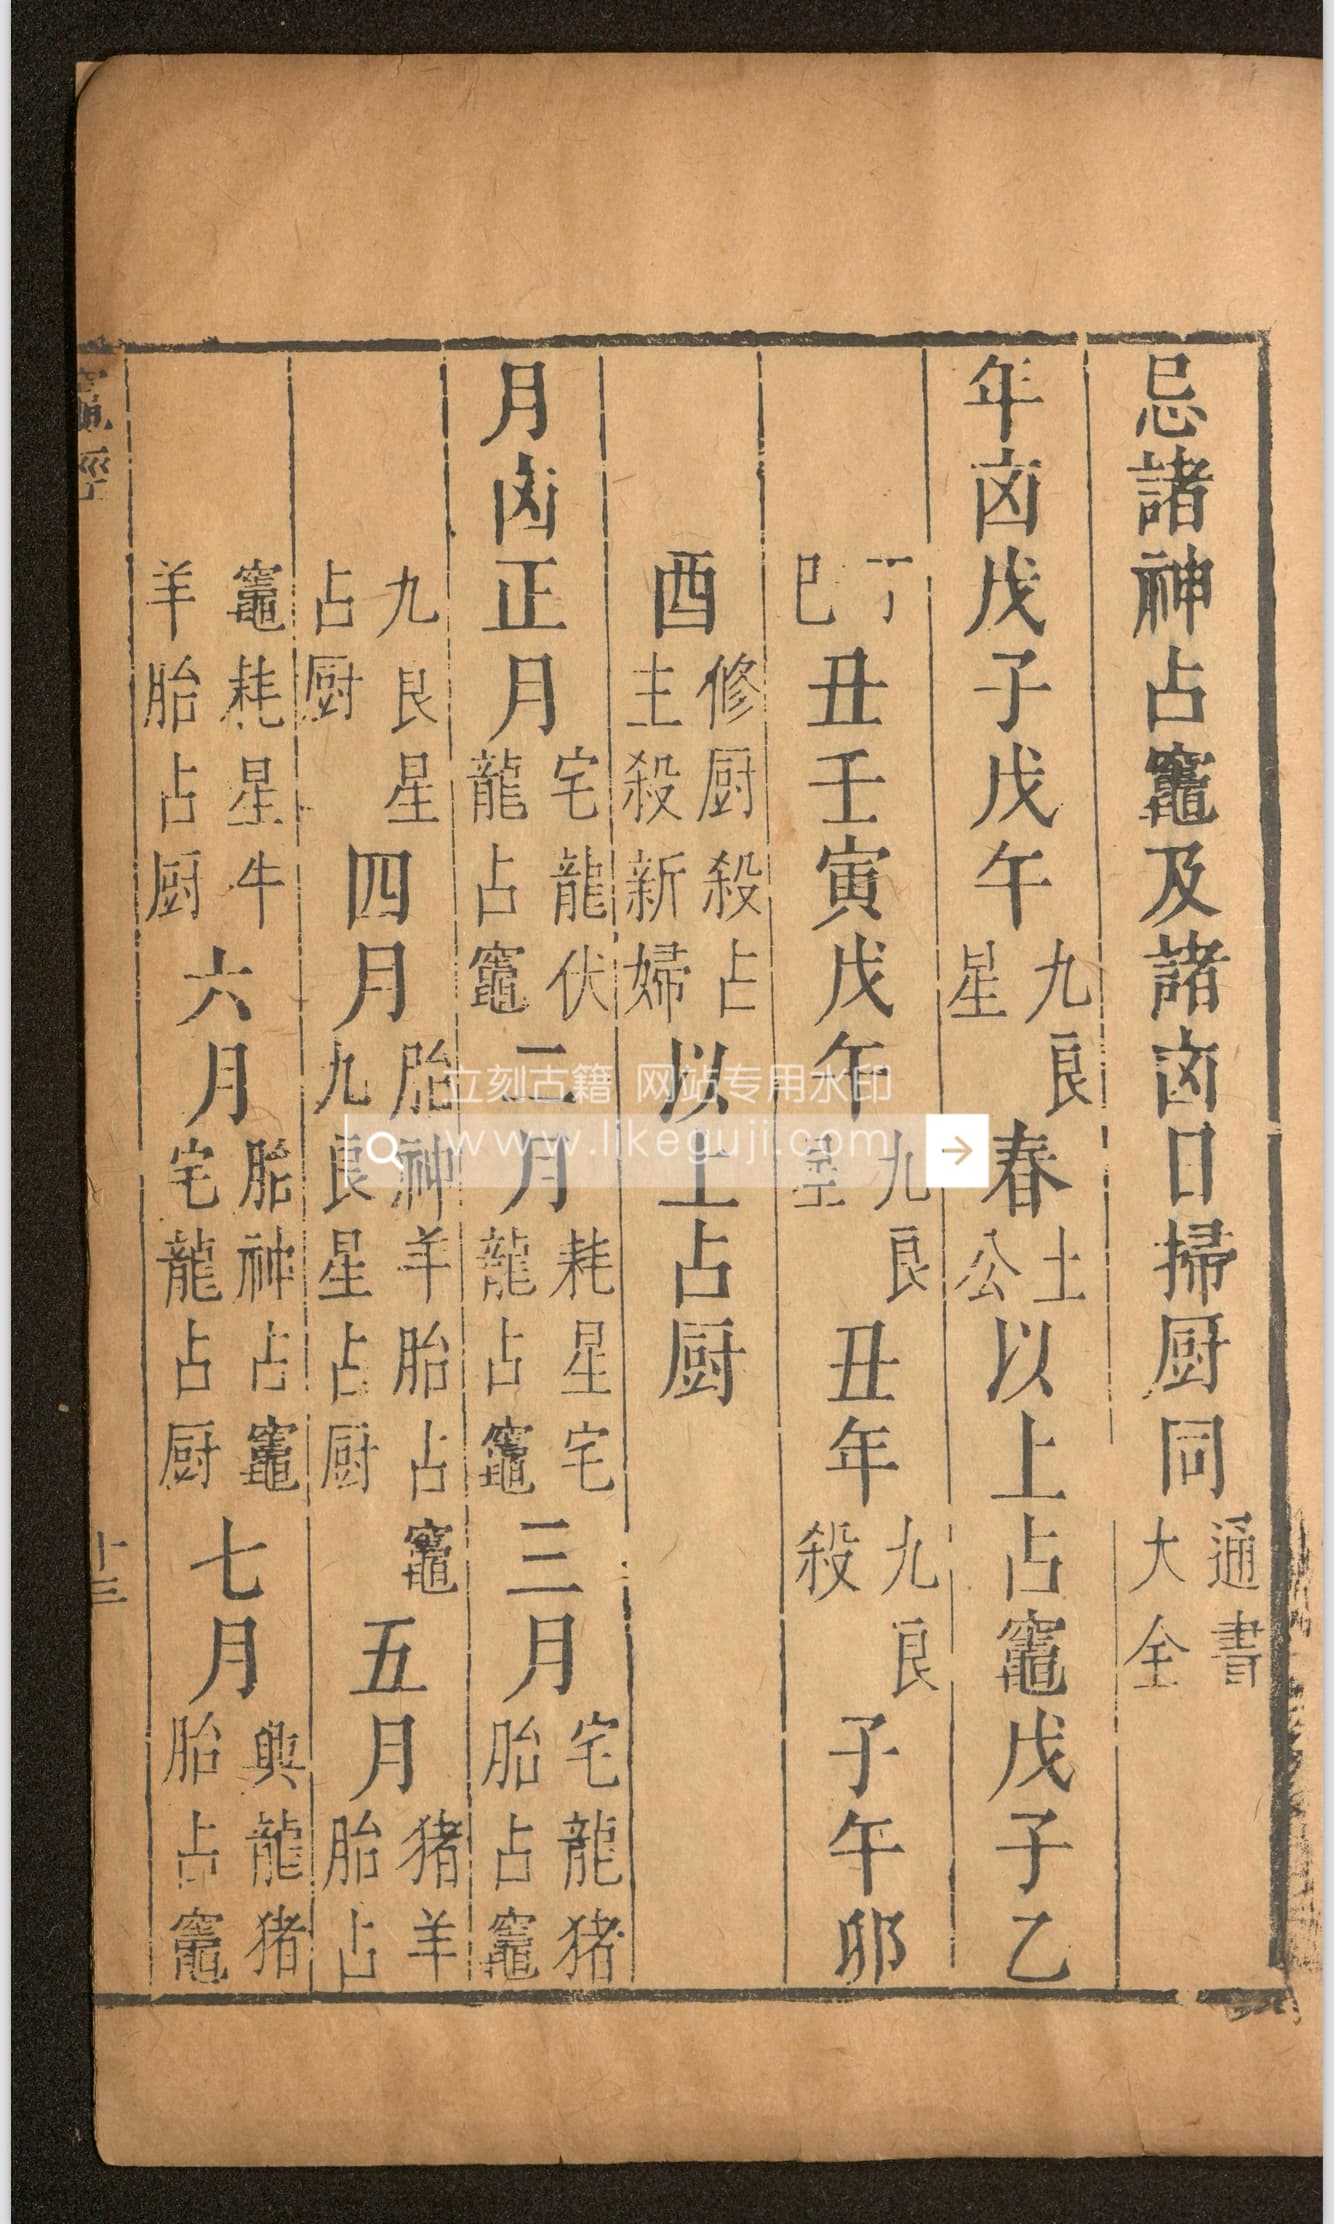 忌諸神占竈及諸卤日掃厨同通書大全
年卤戊子戊午九良星春土公以上占竈戊子乙
丁巳丑壬寅戊午九良星丑年九良殺子午卯
酉修厨殺占主殺新婦以上占厨
月卤正月宅龍伏龍占竈二月耗星宅龍占竈三月宅龍猪胎占竈
九良星占厨四月胎神羊胎占竈九良星占厨五月猪羊胎占
竈耗星牛羊胎占厨六月胎神占竈宅龍占厨七月與龍猪胎占竈
竈經
十三
立刻古籍 网站专用水印
www.likeguji.com